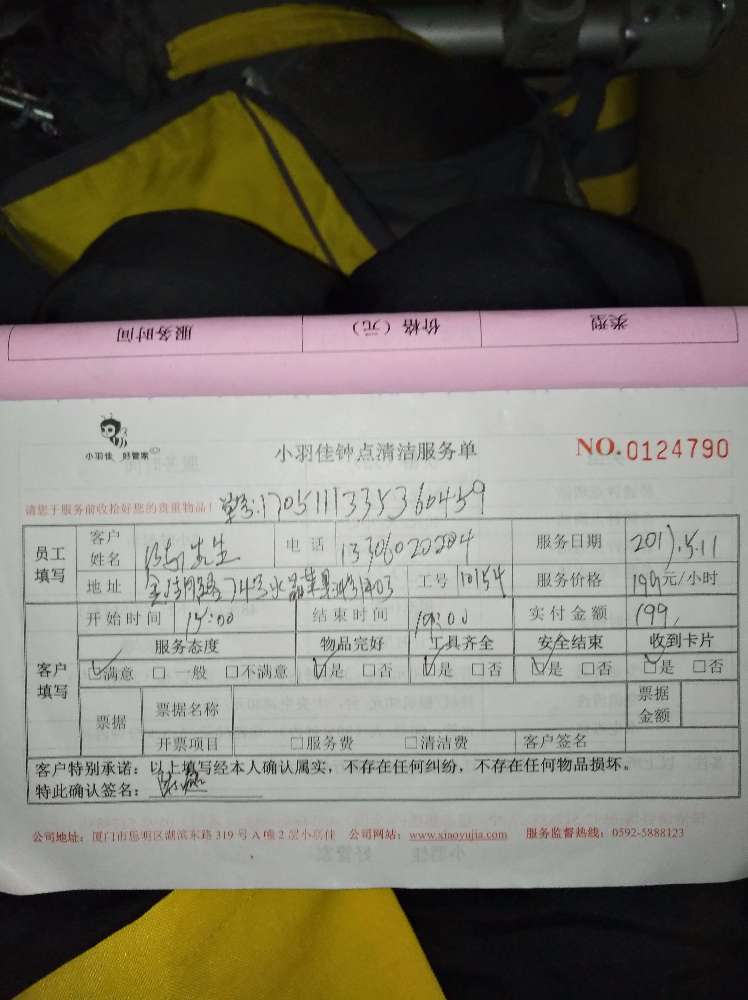 服务时间 价格（元） 类型
小羽佳 好管家
小羽佳钟点清洁服务单
NO.0124790
请您于服务前收拾好您的贵重物品！
单号:170511133536 0459
员工填写 客户姓名 先生 电话 13306020204 服务日期 2017.5.11
地址 74号水晶苹果 工号 10154 服务价格 199元/小时
客户填写 开始时间 15:00 结束时间 19:00 实付金额 199
服务态度 物品完好 工具齐全 安全结束 收到卡片
☑满意 □一般 □不满意 ☑是 □否 ☑是 □否 ☑是 □否 ☑是 □否
票据 票据名称 票据金额
开票项目 □服务费 □清洁费 客户签名
客户特别承诺：以上填写经本人确认属实，不存在任何纠纷，不存在任何物品损坏。
特此确认签名：
公司地址：厦门市思明区湖滨东路319号A幢2层小羽佳 公司网站：www.xiaoyujia.com 服务监督热线：0592-5888123